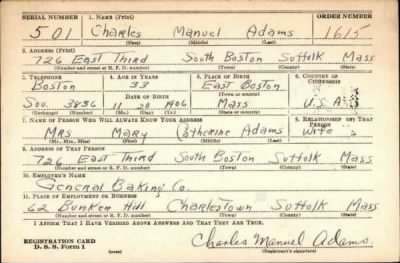 SERIAL NUMBER 1. NAME (Print) ORDER NUMBER
501 Charles Manuel Adams 1615
(First) (Middle) (Last)
2. ADDRESS (Print)
726 East Third South Boston Suffolk Mass
(Number and street or R. F. D. number) (Town) (County) (State)
3. TELEPHONE 4. AGE IN YEARS 5. PLACE OF BIRTH 6. COUNTRY OF CITIZENSHIP
Boston 33 East Boston
DATE OF BIRTH (Town or county)
Sou. 3836 11 20 1906 Mass U.S.A.
(Exchange) (Number) (Mo.) (Day) (Yr.) (State or country)
7. NAME OF PERSON WHO WILL ALWAYS KNOW YOUR ADDRESS 8. RELATIONSHIP OF THAT PERSON
Mrs Mary Catherine Adams Wife
(Mr., Mrs., Miss) (First) (Middle) (Last)
9. ADDRESS OF THAT PERSON
726 East Third South Boston Suffolk Mass
(Number and street or R. F. D. number) (Town) (County) (State)
10. EMPLOYER'S NAME
General Baking Co.
11. PLACE OF EMPLOYMENT OR BUSINESS
62 Bunker Hill Charlestown Suffolk Mass
(Number and street or R. F. D. number) (Town) (County) (State)
I AFFIRM THAT I HAVE VERIFIED ABOVE ANSWERS AND THAT THEY ARE TRUE.
REGISTRATION CARD
D. S. S. Form 1 (over) Charles Manuel Adams.